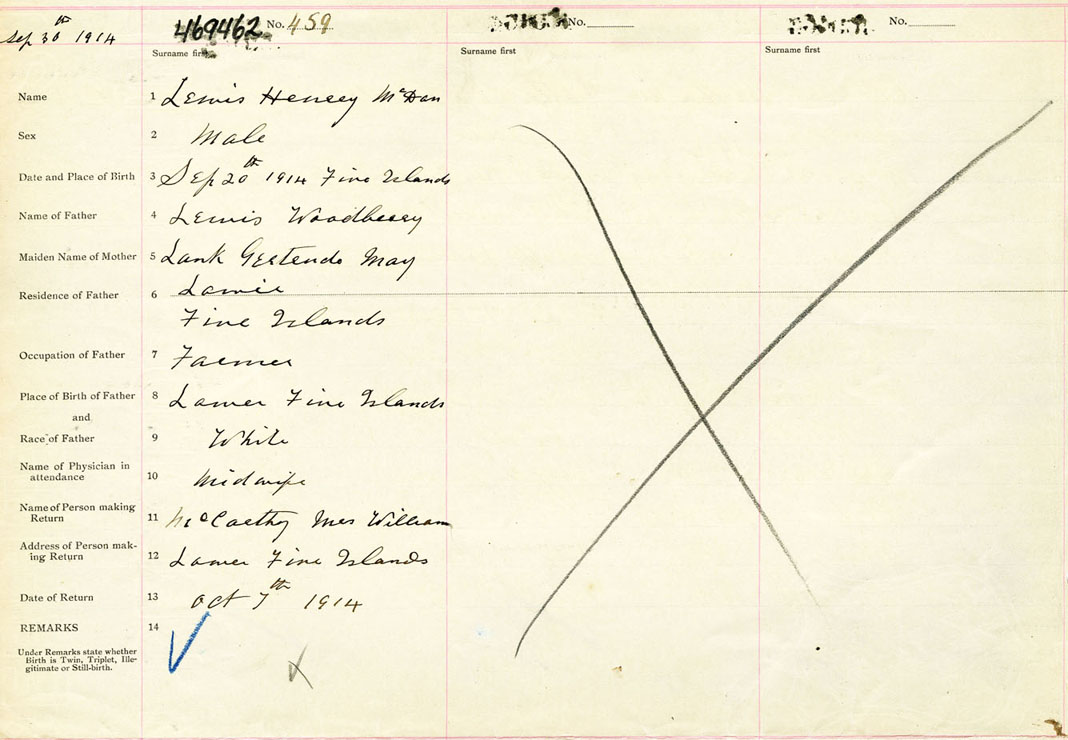 Sep 30th 1914
469462 No. 459
No.
No.
Surname first
Surname first
Surname first
Name 1 Lewis Henery McDan
Sex 2 Male
Date and Place of Birth 3 Sep 20th 1914 Five Islands
Name of Father 4 Lewis Woodberry
Maiden Name of Mother 5 Lank Gertendo May
Residence of Father 6 Lower
Five Islands
Occupation of Father 7 Farmer
Place of Birth of Father 8 Lower Five Islands
and
Race of Father 9 White
Name of Physician in
attendance 10 Midwife
Name of Person making
Return 11 McCarthy Mrs William
Address of Person mak-
ing Return 12 Lower Five Islands
Date of Return 13 Oct 7th 1914
REMARKS 14
Under Remarks state whether
Birth is Twin, Triplet, Ille-
gitimate or Still-birth.